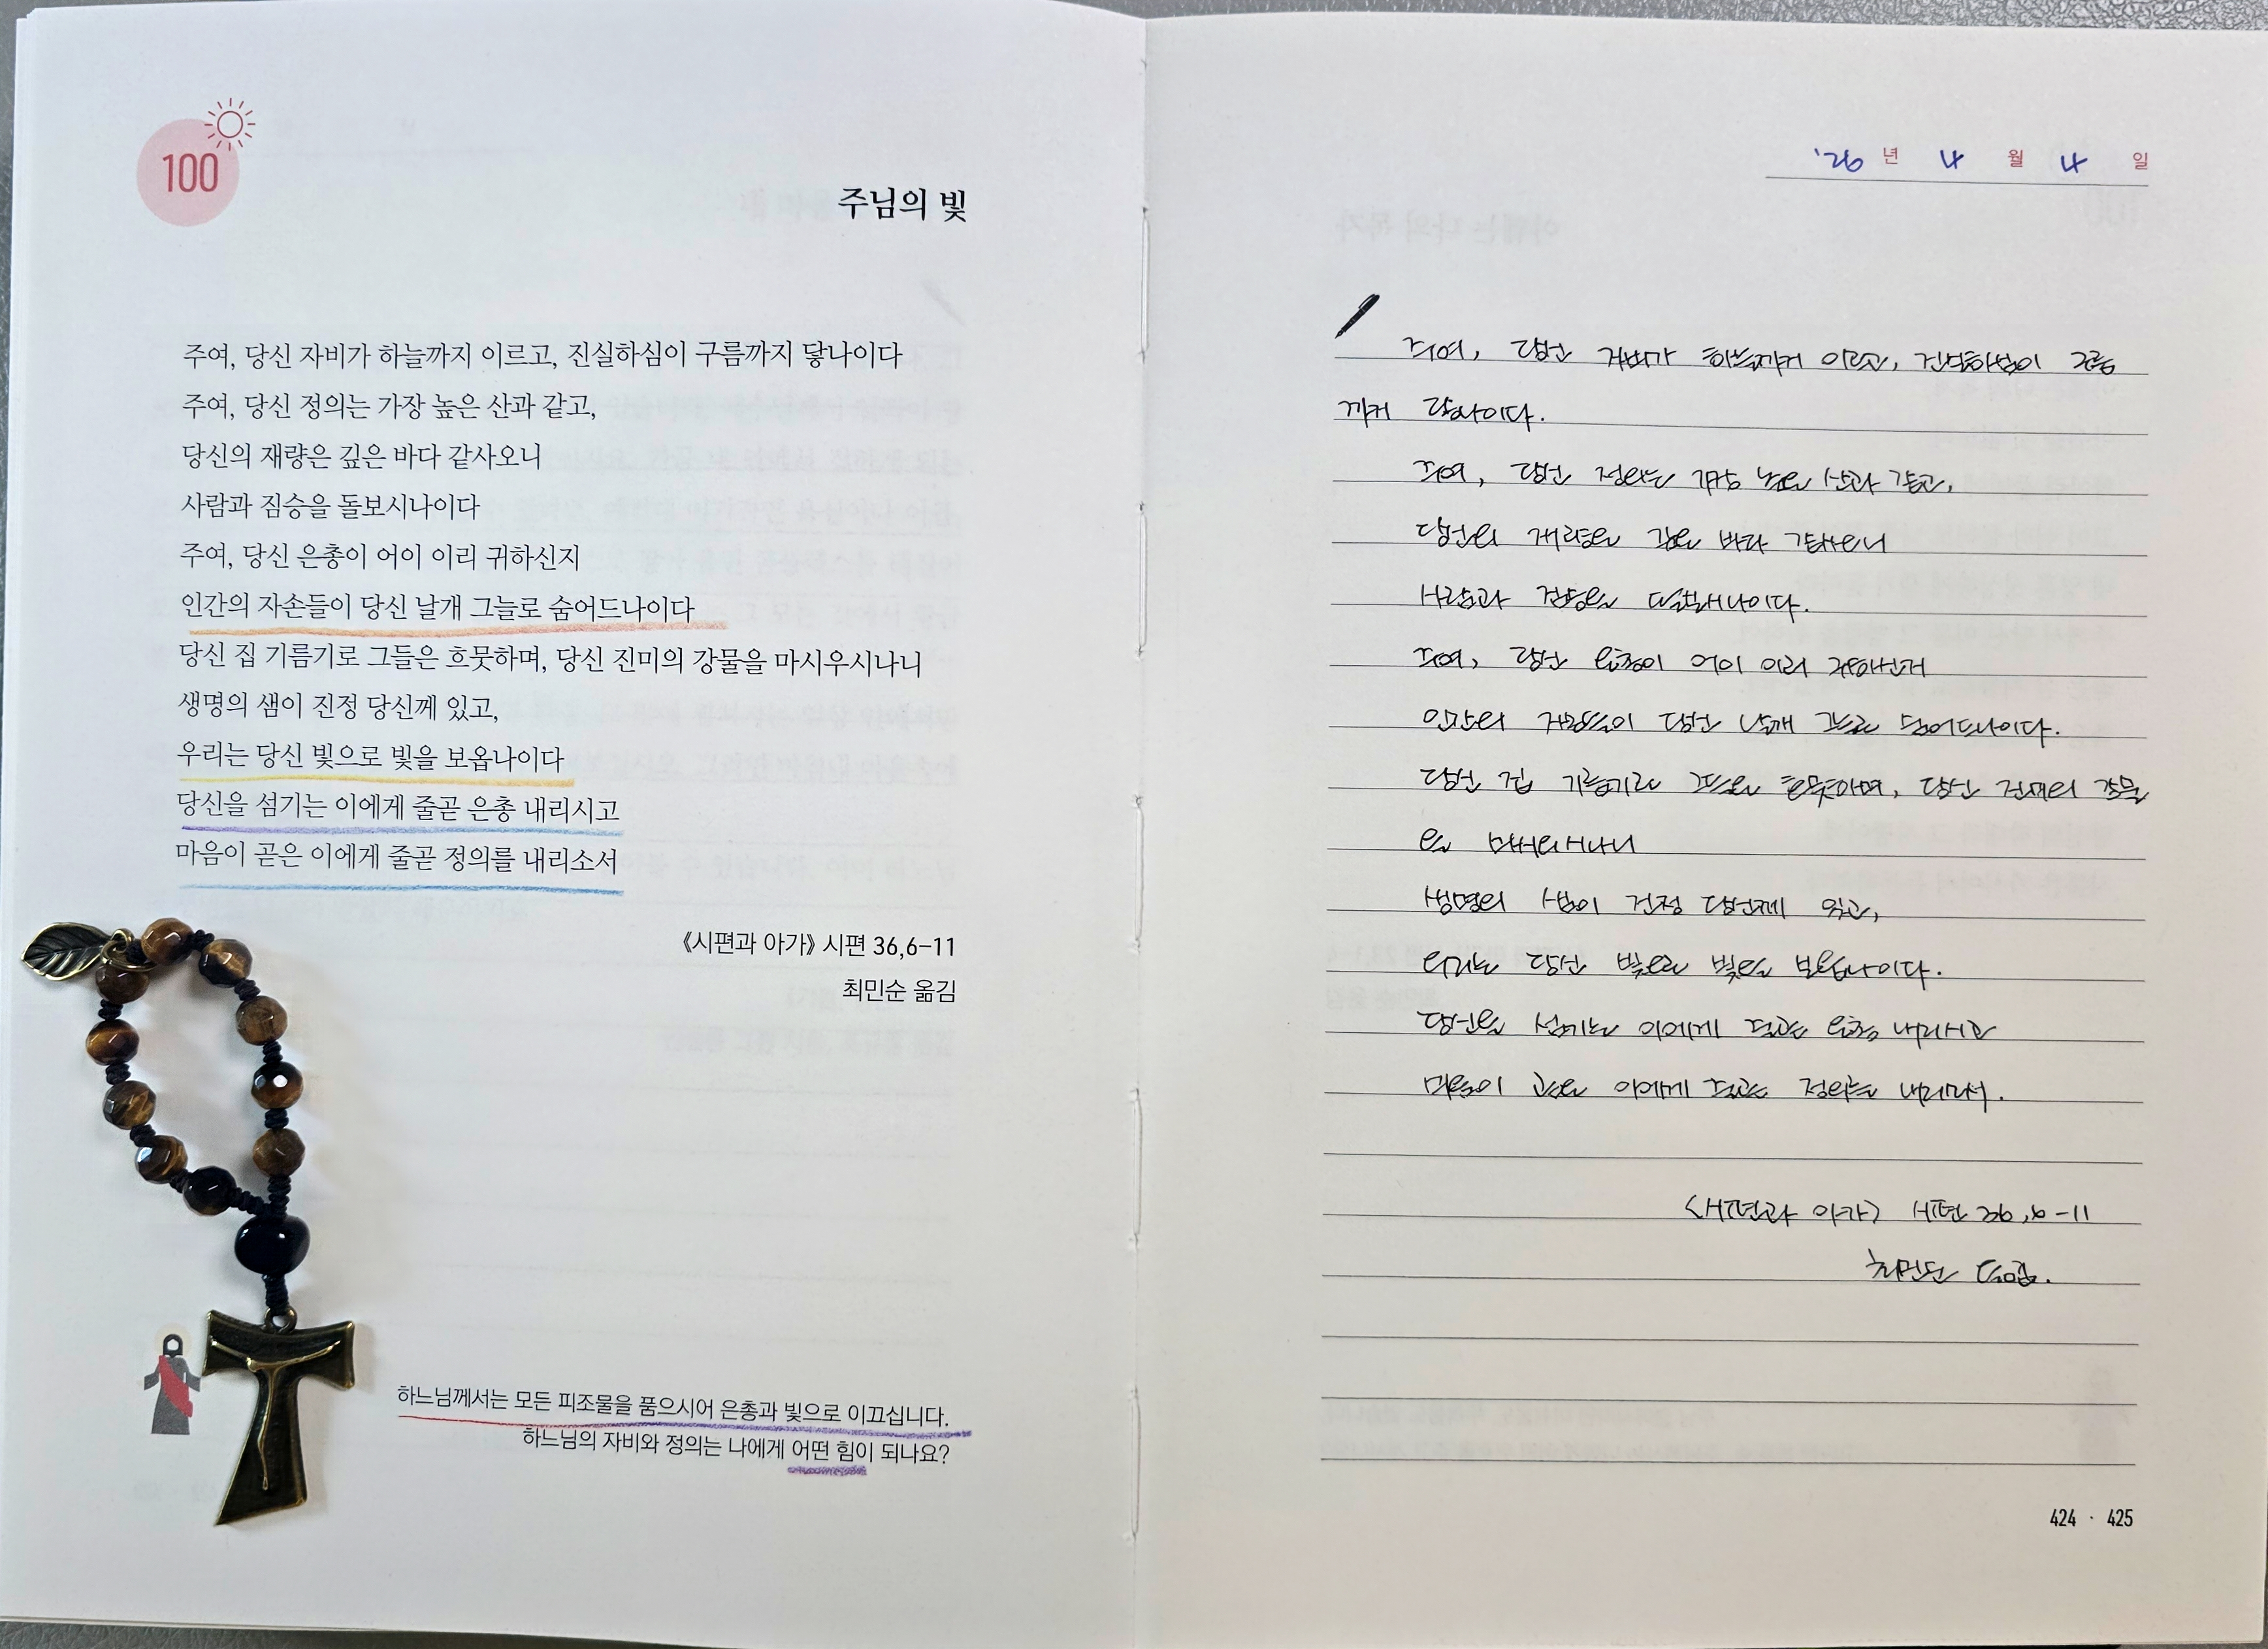 100
주님의 빛
주여, 당신 자비가 하늘까지 이르고, 진실하심이 구름까지 닿나이다
주여, 당신 정의는 가장 높은 산과 같고,
당신의 재량은 깊은 바다 같사오니
사람과 짐승을 돌보시나이다
주여, 당신 은총이 어이 이리 귀하신지
인간의 자손들이 당신 날개 그늘로 숨어드나이다
당신 집 기름기로 그들은 흐뭇하며, 당신 진미의 강물을 마시우시나니
생명의 샘이 진정 당신께 있고,
우리는 당신 빛으로 빛을 보옵나이다
당신을 섬기는 이에게 줄곧 은총 내리시고
마음이 곧은 이에게 줄곧 정의를 내리소서
《시편과 아가》 시편 36,6–11
최민순 옮김
하느님께서는 모든 피조물을 품으시어 은총과 빛으로 이끄십니다.
하느님의 자비와 정의는 나에게 어떤 힘이 되나요?
'26 년 4 월 4 일
주여, 당신 자비가 하늘까지 이르고, 진실하심이 구름
까지 닿나이다.
주여, 당신 정의는 가장 높은 산과 같고,
당신의 재량은 깊은 바다 같사오니
사람과 짐승을 돌보시나이다.
주여, 당신 은총이 어이 이리 귀하신지
인간의 자손들이 당신 날개 그늘로 숨어드나이다.
당신 집 기름기로 그들은 흐뭇하며, 당신 진미의 강물
을 마시우시나니
생명의 샘이 진정 당신께 있고,
우리는 당신 빛으로 빛을 보옵나이다.
당신을 섬기는 이에게 줄곧 은총 내리시고
마음이 곧은 이에게 줄곧 정의를 내리소서.
<시편과 아가> 시편 36,6-11
최민순 옮김.
424 · 425